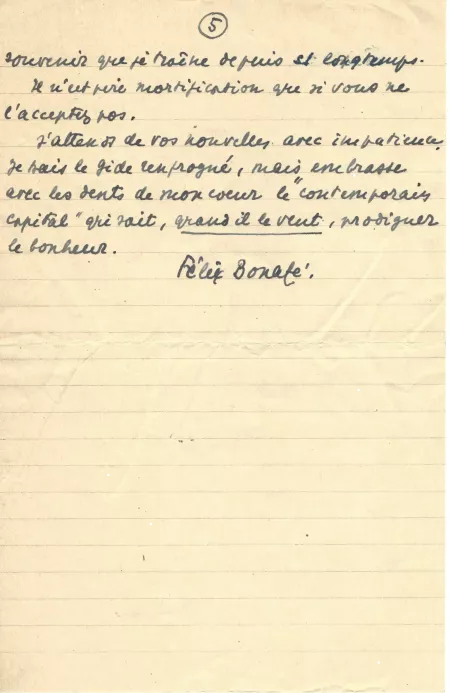 5
souvenir que je traîne depuis si longtemps.
Il n'est pire mortification que si vous ne
l'acceptez pas.
J'attends de vos nouvelles avec impatience.
Je hais le Gide renfrogné, mais embrasse
avec les dents de mon coeur le "contemporain
capital" qui sait, quand il le veut, prodiguer
le bonheur.
Félix Bonafé.